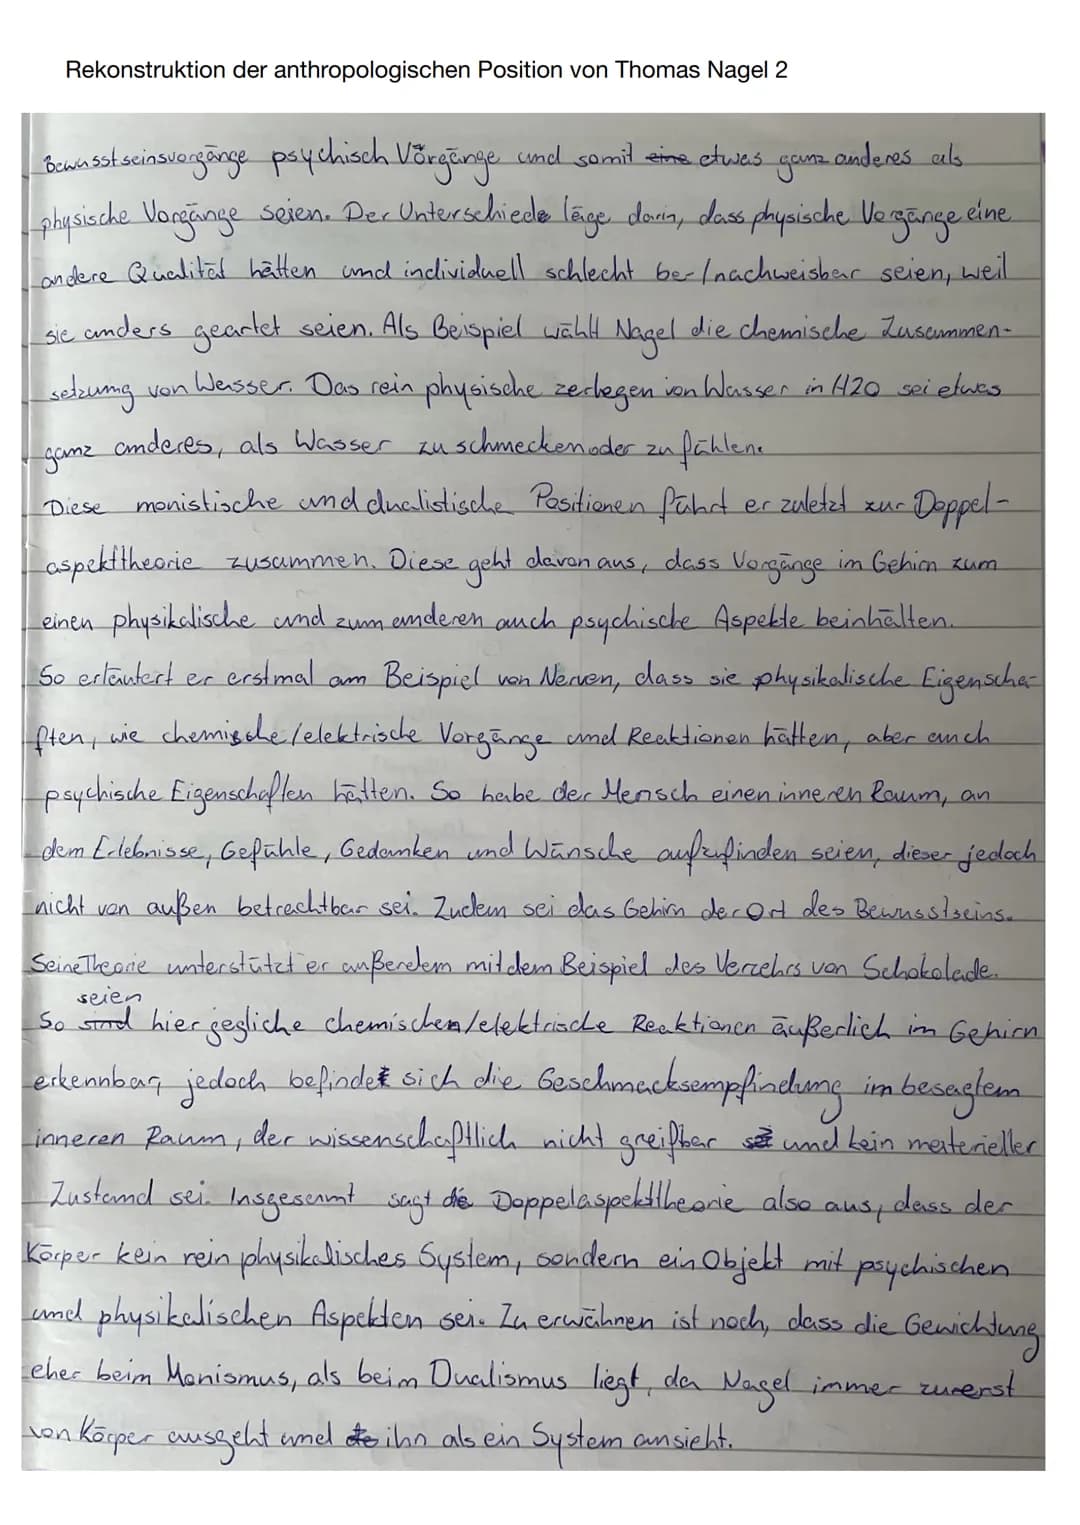 Rekonstruktion der anthropologischen Position von Thomas Nagel 2
Bewusstseinsvorgänge psychisch Vörgänge und somit eine etwas ganz anderes als
physische Vorgänge seien. Der Unterschiede läge darin, dass physische Vorgänge eine
andere Qualität hätten und individuell schlecht be-/nachweisbar seien, weil
sie anders geartet seien. Als Beispiel wählt Nagel die chemische Zusammen-
setzung von Wasser. Das rein physische zerlegen von Wasser in H2O sei etwas
ganz anderes, als Wasser zu schmecken oder zu fühlen.
Diese monistische und dualistische Positionen führt er zuletzt zur Doppel-
aspekttheorie zusammen. Diese geht davon aus, dass Vorgänge im Gehirn zum
einen physikalische und zum anderen auch psychische Aspekte beinhälten.
So erläutert er erstmal am Beispiel von Nerven, dass sie physikalische Eigenscha-
ften, wie chemische/elektrische Vorgänge und Reaktionen hätten, aber auch
psychische Eigenschaften hätten. So habe der Mensch einen inneren Raum, an
dem Erlebnisse, Gefühle, Gedanken und Wünsche aufzufinden seien, dieser jedoch
nicht von außen betrachtbar sei. Zudem sei das Gehirn der Ort des Bewusstseins.
Seine Theorie unterstützt er außerdem mit dem Beispiel des Verzehrs von Schokolade.
seien
So sind hier jegliche chemischen/elektrische Reaktionen äußerlich im Gehirn
erkennbar, jedoch befindet sich die Geschmacksempfindung im besagtem
inneren Raum, der wissenschaftlich nicht greifbar und kein materieller
Zustand sei. Insgesamt sagt die Doppelaspekttheorie also aus, dass der
Körper kein rein physikalisches System, sondern ein Objekt mit psychischen
und physikalischen Aspekten sei. Zu erwähnen ist noch, dass die Gewichtung
eher beim Monismus, als beim Dualismus liegt, da Nagel immer zurerst
von Körper ausgeht und ihn als ein System ansieht.